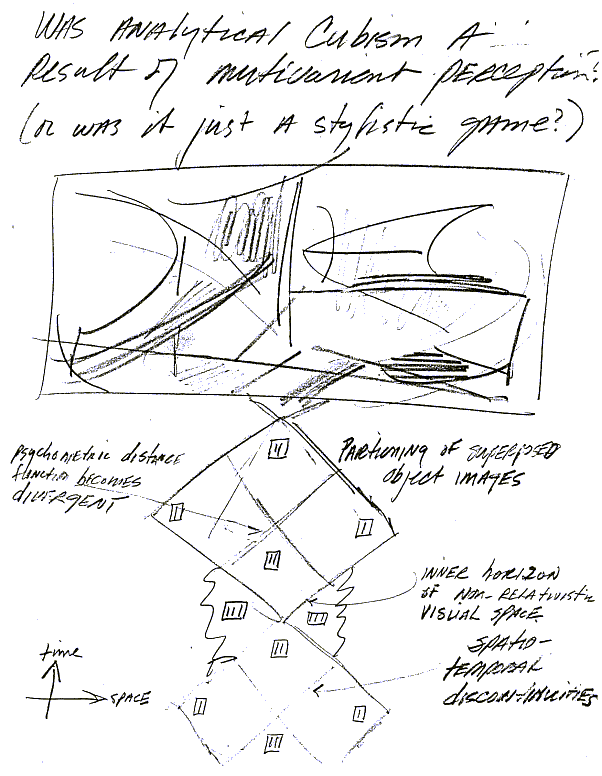 WAS ANALYTICAL CUBISM A
RESULT OF MUTIVARIENT PERCEPTION?
(OR WAS IT JUST A STYLISTIC GAME?)
PSYCHOMETRIC DISTANCE
FUNCTION BECOMES
DIVERGENT
PARTIONING OF SUPERPOSED
OBJECT IMAGES
II
I
I
III
INNER HORIZON
OF NON-RELATIVISTIC
VISUAL SPACE
III
III
II
SPATIO-
TEMPORAL
DISCONTINUITIES
TIME
SPACE
I
I
III